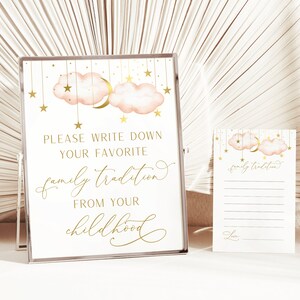 PLEASE WRITE DOWN
YOUR FAVORITE
family tradition
FROM YOUR
childhood
family tradition